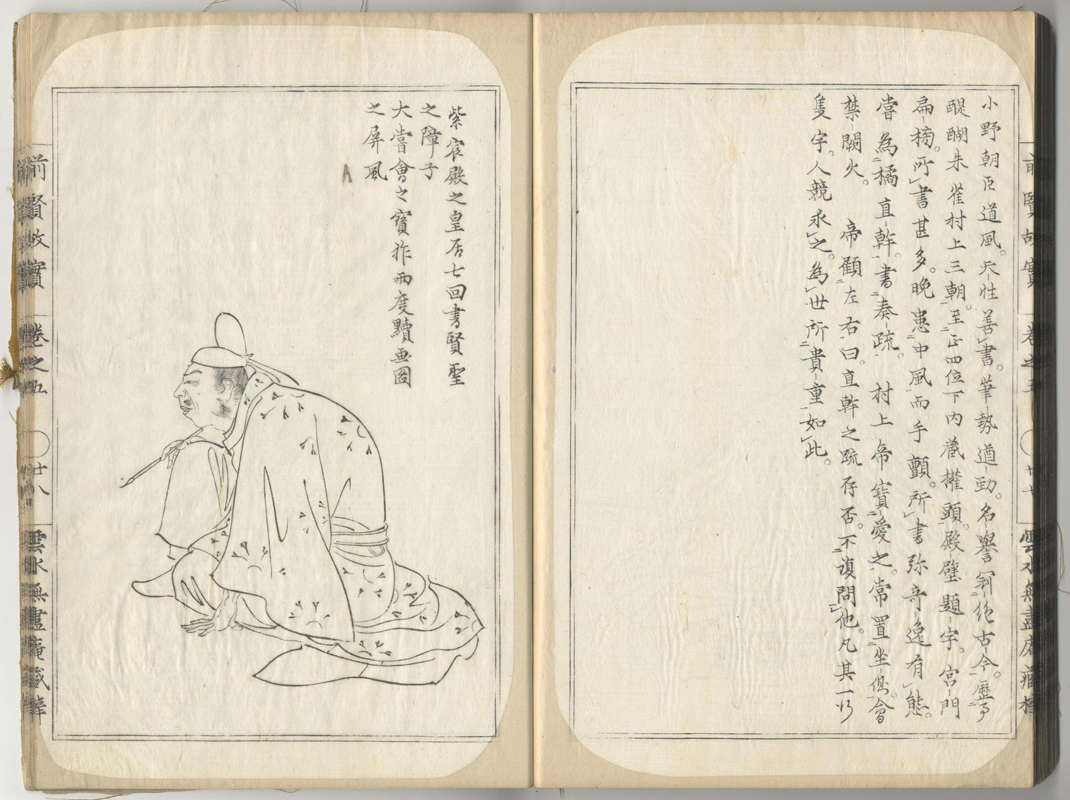 小野朝臣道風。天性善書。筆勢遒勁。名譽冠絶古今。歷事
醍醐朱雀村上三朝。至正四位下内藏權頭。殿壁題字。宮門
扁榜。所書甚多。晚患中風而手顫。所書弥奇逸有態。
嘗為橘直幹。書奏疏。村上帝寶愛之。常置坐側。會
禁闕火。帝顧左右曰。直幹之疏存否。不復問他。凡其一行
隻字。人競求之。為世所貴重如此。
紫宸殿之皇居七回書賢聖
之障子
大嘗會之寳祚両度黷画図
之屏風
前賢故實 卷之五 廿八 雲水無盡庵藏梓
前賢故實 卷之五
雲水無盡庵藏梓